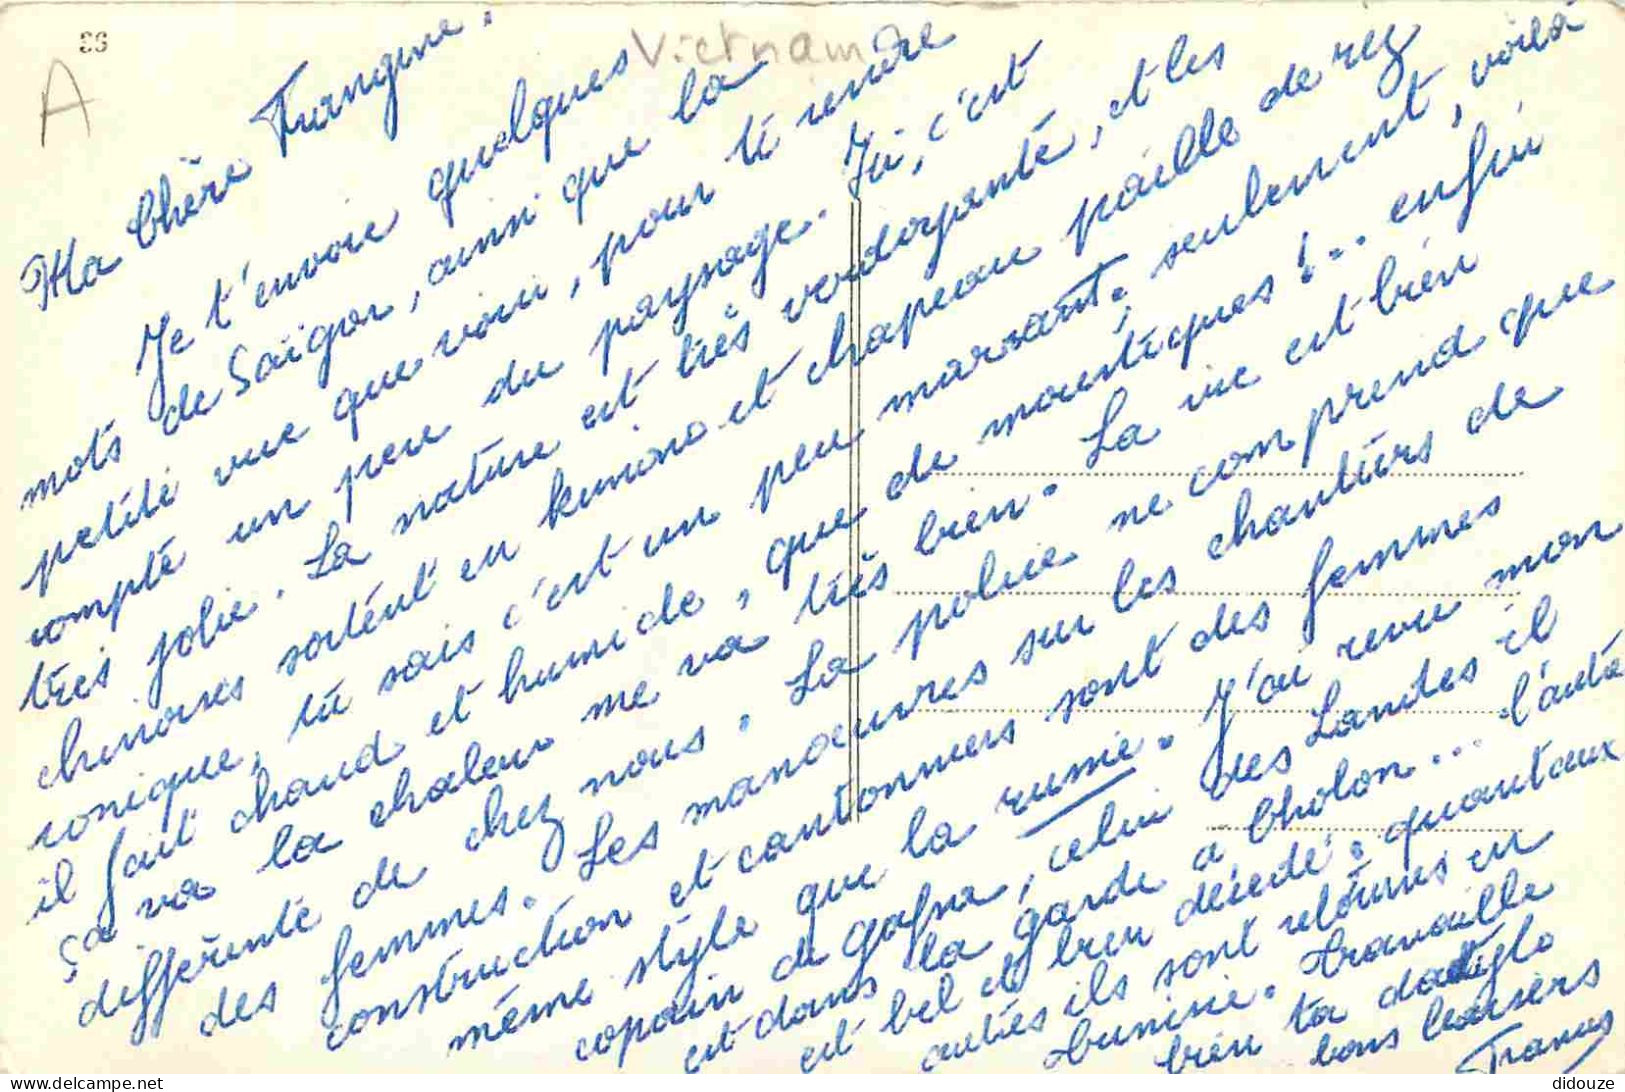 86
A
Vietnam
Ma Chère Frangine.
Je t'envoie quelques
mots de Saïgon, ainsi que la
petite vue que voici, pour te rendre
compte un peu du paysage. Ici, c'est
très jolie. La nature est très verdoyante, et les
chinoises sortent en kimono et chapeau paille de riz
conique, tu sais c'est un peu marrant; seulement, voilà
il fait chaud et humide, que de moustiques!... enfin
ça va la chaleur me va très bien. La vie est bien
différente de chez nous. La police ne comprend que
des femmes. Les manoeuvres sur les chantiers de
construction et cantonniers sont des femmes
même style que la russie. J'ai revu mon
copain de gafsa, celui des Landes il
est dans la garde à Cholon... l'autre
est bel et bien décédé. quant aux
autres ils sont retournés en
tunisie. travaille
bien ta dactylo
bons baisers
Francis
didouze
delcampe.net